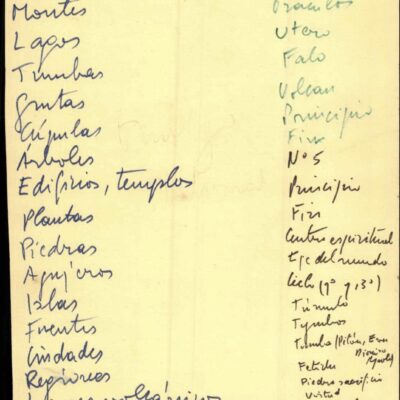 Montes
Lagos
Tumbas
Grutas
Cúpulas
Árboles
Edificios, templos
Plantas
Piedras
Agujeros
Islas
Fuentes
Ciudades
Regiones
Oráculos
Utero
Falo
Volcan
Principio
Fin
Nº 5
Principio
Fin
Centro espiritual
Eje del mundo
Ciclo (1º y 3º)
Túmulo
Tymbos
Tumba (Pitón,
Fetiche
Piedra sacrificio
Virtud